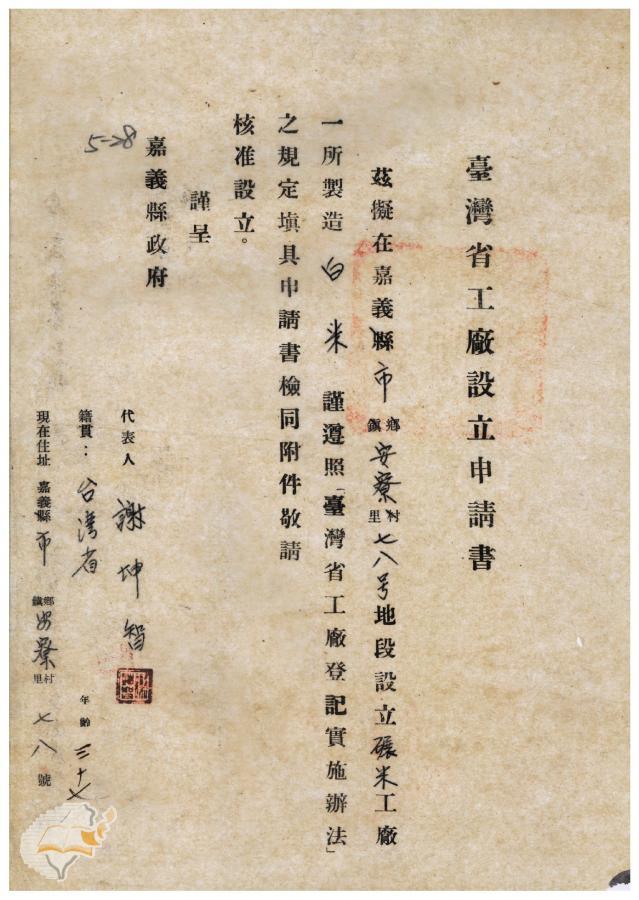 臺灣省工廠設立申請書
茲擬在嘉義縣市鄉鎮安寮村里七八号地段設立碾米工廠
一所製造白米謹遵照「臺灣省工廠登記實施辦法」
之規定填具申請書檢同附件敬請
核准設立。
謹呈
嘉義縣政府
5-28
代表人 謝坤智
籍貫：台灣省 年齡三十七
現在住址 嘉義縣市鄉鎮安寮村里七八號